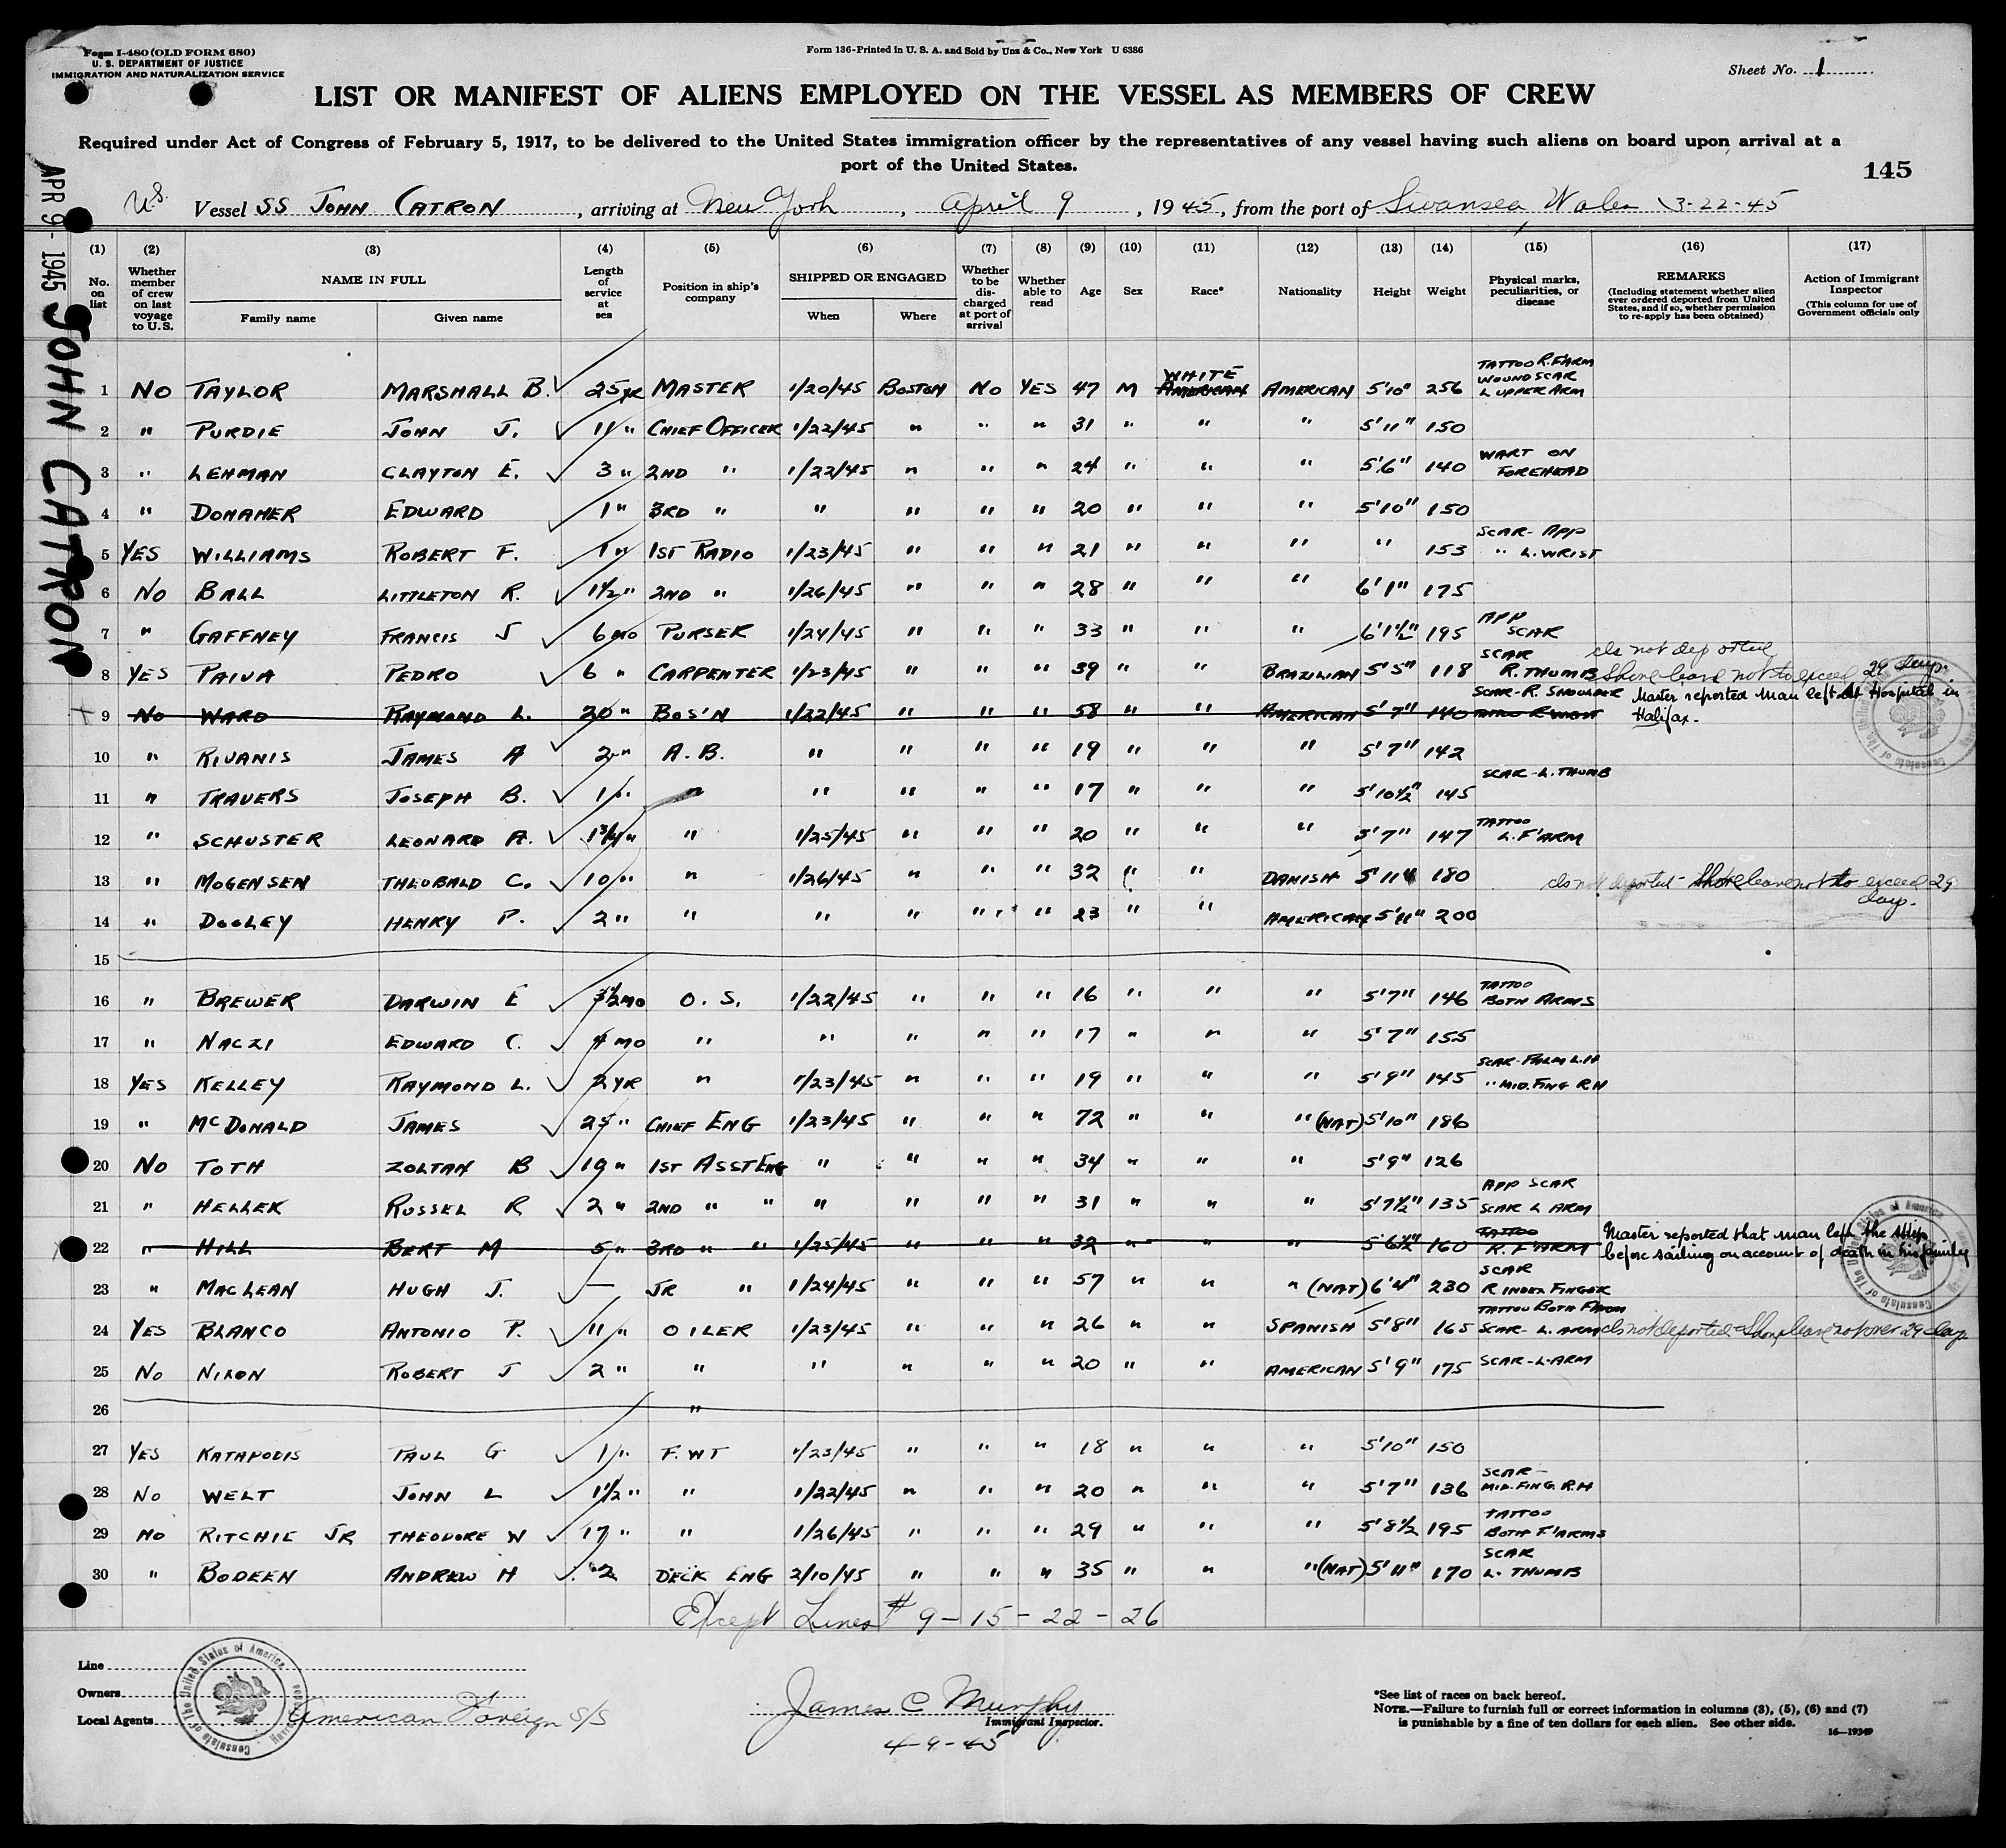 Form I-480 (OLD FORM 680)
U. S. DEPARTMENT OF JUSTICE
IMMIGRATION AND NATURALIZATION SERVICE
Form 136-Printed in U. S. A. and Sold by Unz & Co., New York U 6386
Sheet No. 1
LIST OR MANIFEST OF ALIENS EMPLOYED ON THE VESSEL AS MEMBERS OF CREW
Required under Act of Congress of February 5, 1917, to be delivered to the United States immigration officer by the representatives of any vessel having such aliens on board upon arrival at a
port of the United States.
145
APR 9 - 1945 JOHN CATRON
U.S. Vessel SS JOHN CATRON, arriving at New York, April 9, 1945, from the port of Swansea, Wales 3-22-45
(1) (2) (3) (4) (5) (6) (7) (8) (9) (10) (11) (12) (13) (14) (15) (16) (17)
No. on list
Whether member of crew on last voyage to U. S.
NAME IN FULL
Family name Given name
Length of service at sea
Position in ship's company
SHIPPED OR ENGAGED
When Where
Whether to be discharged at port of arrival
Whether able to read
Age
Sex
Race*
Nationality
Height
Weight
Physical marks, peculiarities, or disease
REMARKS
(Including statement whether alien ever ordered deported from United States, and if so, whether permission to re-apply has been obtained)
Action of Immigrant Inspector
(This column for use of Government officials only
1 NO TAYLOR MARSHALL B. 25 YR MASTER 1/20/45 BOSTON NO YES 47 M WHITE AMERICAN AMERICAN 5'10" 256 TATTOO R.F'ARM WOUND SCAR L UPPER ARM
2 " PURDIE JOHN J. 11 " CHIEF OFFICER 1/22/45 " " " 31 " " " 5'11" 150
3 " LEHMAN CLAYTON E. 3 " 2ND " 1/22/45 " " " 24 " " " 5'6" 140 WART ON FOREHEAD
4 " DONAHER EDWARD 1 " 3RD " " " " " 20 " " " 5'10" 150
5 YES WILLIAMS ROBERT F. 1 " 1ST RADIO 1/23/45 " " " 21 " " " " 153 SCAR - APP " L. WRIST
6 NO BALL LITTLETON R. 1 1/2 " 2ND " 1/26/45 " " " 28 " " " 6'1" 175
7 " GAFFNEY FRANCIS J 6 MO PURSER 1/24/45 " " " 33 " " " 6'1 1/2" 195 APP SCAR
8 YES PAIVA PEDRO 6 " CARPENTER 1/23/45 " " " 39 " " BRAZILIAN 5'5" 118 SCAR R. THUMB Shore leave not to exceed 29 days.
9 NO WARD RAYMOND L. 20 " BOS'N 1/22/45 " " " 58 " " AMERICAN 5'7" 140 SCAR-R. SHOULDER Master reported man left at Hospital in Halifax.
10 " RIVANIS JAMES A 2 " A. B. " " " " 19 " " " 5'7" 142
11 " TRAVERS JOSEPH B. 1 " " " " " " 17 " " " 5'10 1/2" 145 SCAR-L. THUMB
12 " SCHUSTER LEONARD A. 1 3/4 " " 1/25/45 " " " 20 " " " 5'7" 147 TATTOO L. F'ARM
13 " MOGENSEN THEOBALD C. 10 " " 1/26/45 " " " 32 " " DANISH 5'11" 180 Shore leave not to exceed 29 days.
14 " DOOLEY HENRY P. 2 " " " " " " 23 " " AMERICAN 5'11" 200
15
16 " BREWER DARWIN E 3 1/2 MO O. S. 1/22/45 " " " 16 " " " 5'7" 146 TATTOO BOTH ARMS
17 " NACZI EDWARD C. 4 MO " " " " " 17 " " " 5'7" 155
18 YES KELLEY RAYMOND L. 2 YR " 1/23/45 " " " 19 " " " 5'9" 145 SCAR-PALM L.H " MID. FING R H
19 " McDONALD JAMES 25 " CHIEF ENG 1/23/45 " " " 72 " " " (NAT) 5'10" 186
20 NO TOTH ZOLTAN B 19 " 1ST ASST ENG " " " " 34 " " " 5'9" 126
21 " HELLER RUSSEL R 2 " 2ND " " " " " " 31 " " " 5'7 1/2" 135 APP SCAR SCAR L ARM
22 " HILL BERT M 5 " 3RD " " 1/25/45 " " " 32 " " " 5'6 1/2" 160 TATTOO R. F'ARM Master reported that man left the ship before sailing on account of death in his family
23 " MACLEAN HUGH J. — JR " 1/24/45 " " " 57 " " " (NAT) 6'4" 230 SCAR R INDEX FINGER
24 YES BLANCO ANTONIO P. 11 " OILER 1/23/45 " " " 26 " " SPANISH 5'8" 165 TATTOO BOTH F'ARM SCAR- L. ARM Shore leave not over 29 days
25 NO NIXON ROBERT J 2 " " " " " " 20 " " AMERICAN 5'9" 175 SCAR-L-ARM
26 "
27 YES KATAPODIS PAUL G 1 " F. WT 1/23/45 " " " 18 " " " 5'10" 150
28 NO WELT JOHN L 1 1/2 " " 1/22/45 " " " 20 " " " 5'7" 136 SCAR - MID. FING. R.H
29 NO RITCHIE JR THEODORE W 17 " " 1/26/45 " " " 29 " " " 5'8 1/2 195 TATTOO BOTH F'ARMS
30 " BODEEN ANDREW H 2 DECK ENG 2/10/45 " " " 35 " " " (NAT) 5'11" 170 SCAR L. THUMB
Except Lines # 9 - 15 - 22 - 26
Line
Owners
Local Agents American Foreign S/S
Consulate of The United States of America
James C Murphy
Immigrant Inspector.
4-9-45
*See list of races on back hereof.
NOTE.—Failure to furnish full or correct information in columns (3), (5), (6) and (7)
is punishable by a fine of ten dollars for each alien. See other side.
16—19349